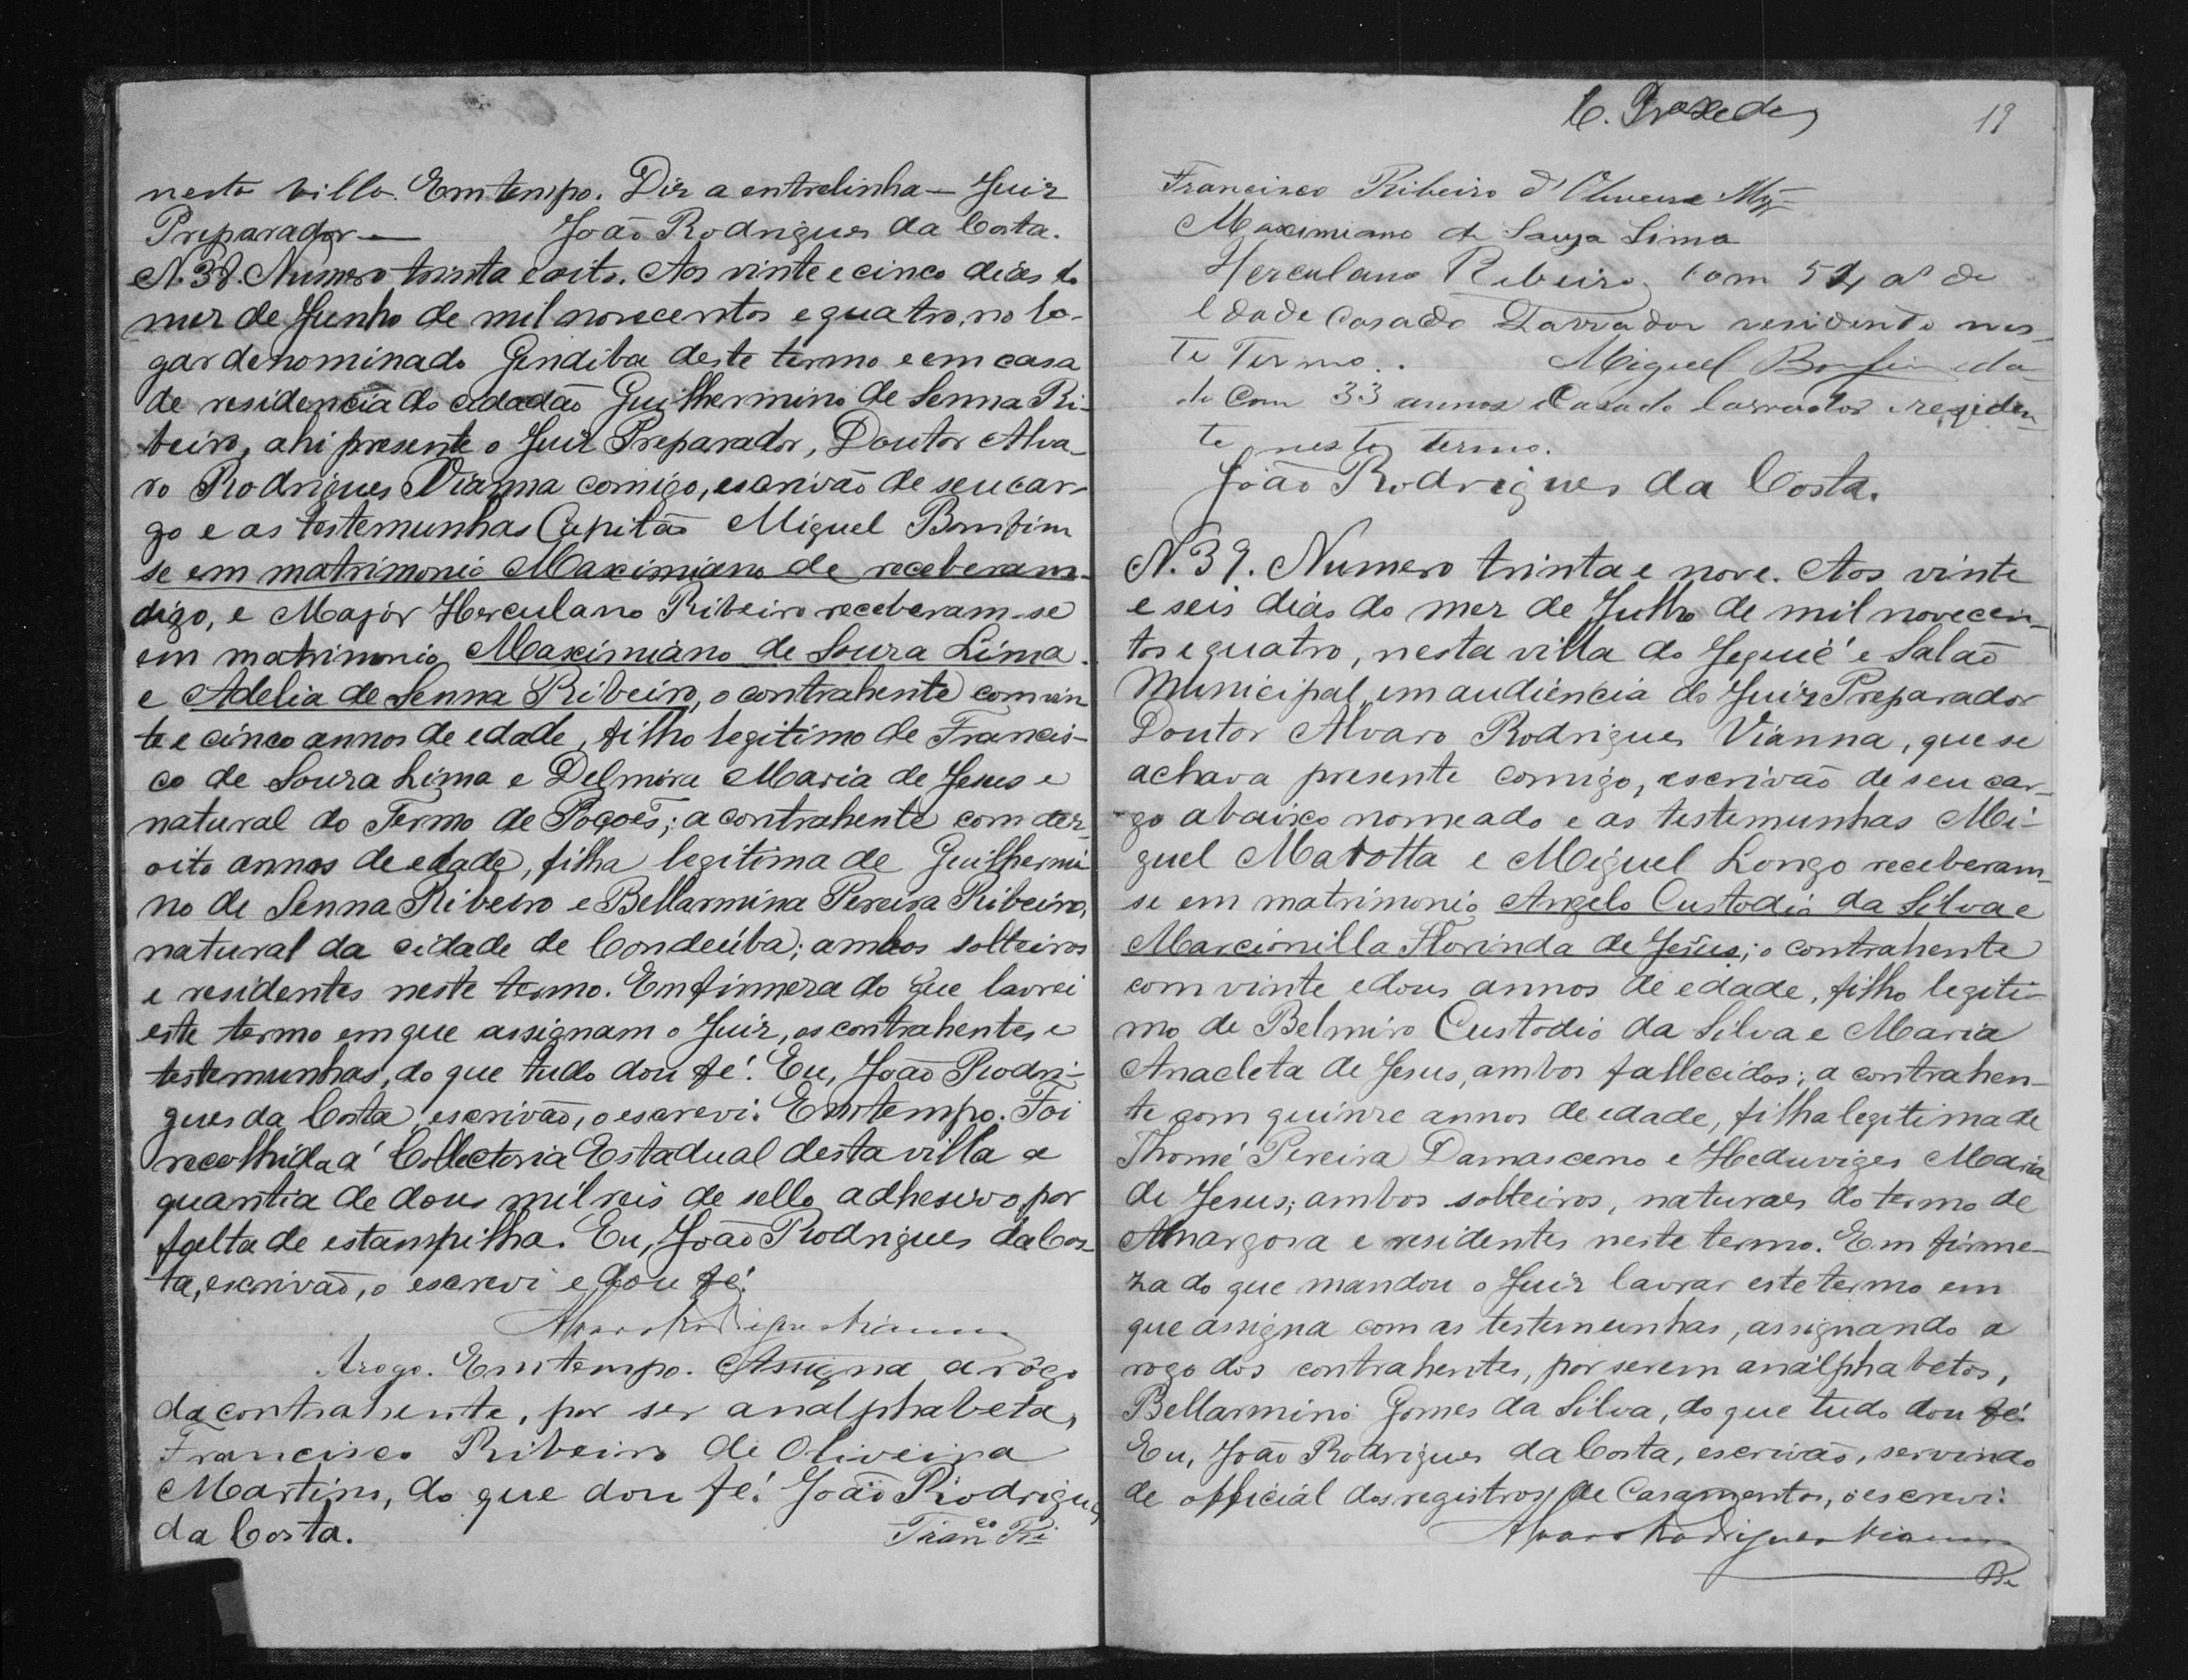 nesta villa. Em tempo. Diz a entrelinha — Juiz
Preparador — João Rodrigues da Costa.
N. 38. Numero trinta e oito. Aos vinte e cinco dias do
mez de Junho de mil novecentos e quatro, no lo-
gar denominado Gendiba deste termo e em casa
de residencia do cidadão Guilhermino de Senna Ri-
beiro, ahi presente o Juiz Preparador, Doutor Alva-
ro Rodrigues Vianna comigo, escrivão de seu car-
go e as testemunhas Capitão Miguel Bomfim
se em matrimonio Maximiano de receberam-
digo, e Major Herculano Ribeiro receberam-se
em matrimonio Maximiano de Souza Lima
e Adelia de Senna Ribeiro, o contrahente com vin
te e cinco annos de edade, filho legitimo de Francis-
co de Souza Lima e Delmira Maria de Jesus e
natural do Termo de Poções; a contrahente com dez-
oito annos de edade, filha legitima de Guilhermi
no de Senna Ribeiro e Bellarmina Pereira Ribeiro,
natural da cidade de Condeúba; ambos solteiros
e residentes neste termo. Em firmeza do que lavrei
este termo em que assignam o Juiz, os contrahentes e
testemunhas, do que tudo dou fé. Eu, João Rodri-
gues da Costa, escrivão, o escrevi. Em tempo. Foi
recolhida á Collectoria Estadual desta villa a
quantia de dous mil reis de sello adhesivo, por
falta de estampilha. Eu, João Rodrigues da Cos-
ta, escrivão, o escrevi e dou fé.
Alvaro Rodrigues Vianna
Arogo. Em tempo. Assigna a rôgo
da contrahente, por ser analphabeta,
Francisco Ribeiro de Oliveira
Martins, do que dou fé. João Rodrigues
da Costa.
Franco Ri
C. Praxedes
19
Francisco Ribeiro d'Oliveira
Maximiano de Souza Lima
Herculano Ribeiro, com 54 as de
Edade Casado Lavrador residente nes-
te Termo.. Miguel Bomfim eda
de Com 33 annos Casado lavrador residen
te neste termo.
João Rodrigues da Costa.
N. 39. Numero trinta e nove. Aos vinte
e seis dias do mez de Julho de mil novecen-
tos e quatro, nesta villa do Jequié e Salão
Municipal, em audiencia do Juiz Preparador
Doutor Alvaro Rodrigues Vianna, que se
achava presente comigo, escrivão de seu car-
go abaixo nomeado e as testemunhas Mi-
guel Marotta e Miguel Longo receberam-
se em matrimonio Angelo Custodio da Silva e
Marcionilla Florinda de Jesus; o contrahente
com vinte e dous annos de edade, filho legiti-
mo de Belmiro Custodio da Silva e Maria
Anacleta de Jesus, ambos fallecidos; a contrahen-
te com quinze annos de edade, filha legitima de
Thomé Pereira Damasceno e Heduviges Maria
de Jesus; ambos solteiros, naturaes do termo de
Amargosa e residentes neste termo. Em firme-
za do que mandou o Juiz lavrar este termo em
que assigna com as testemunhas, assignando a
rogo dos contrahentes, por serem analphabetos,
Bellarmino Gomes da Silva, do que tudo dou fé.
Eu, João Rodrigues da Costa, escrivão, servindo
de official dos registros de Casamentos, o escrevi.
Alvaro Rodrigues Vianna
Be